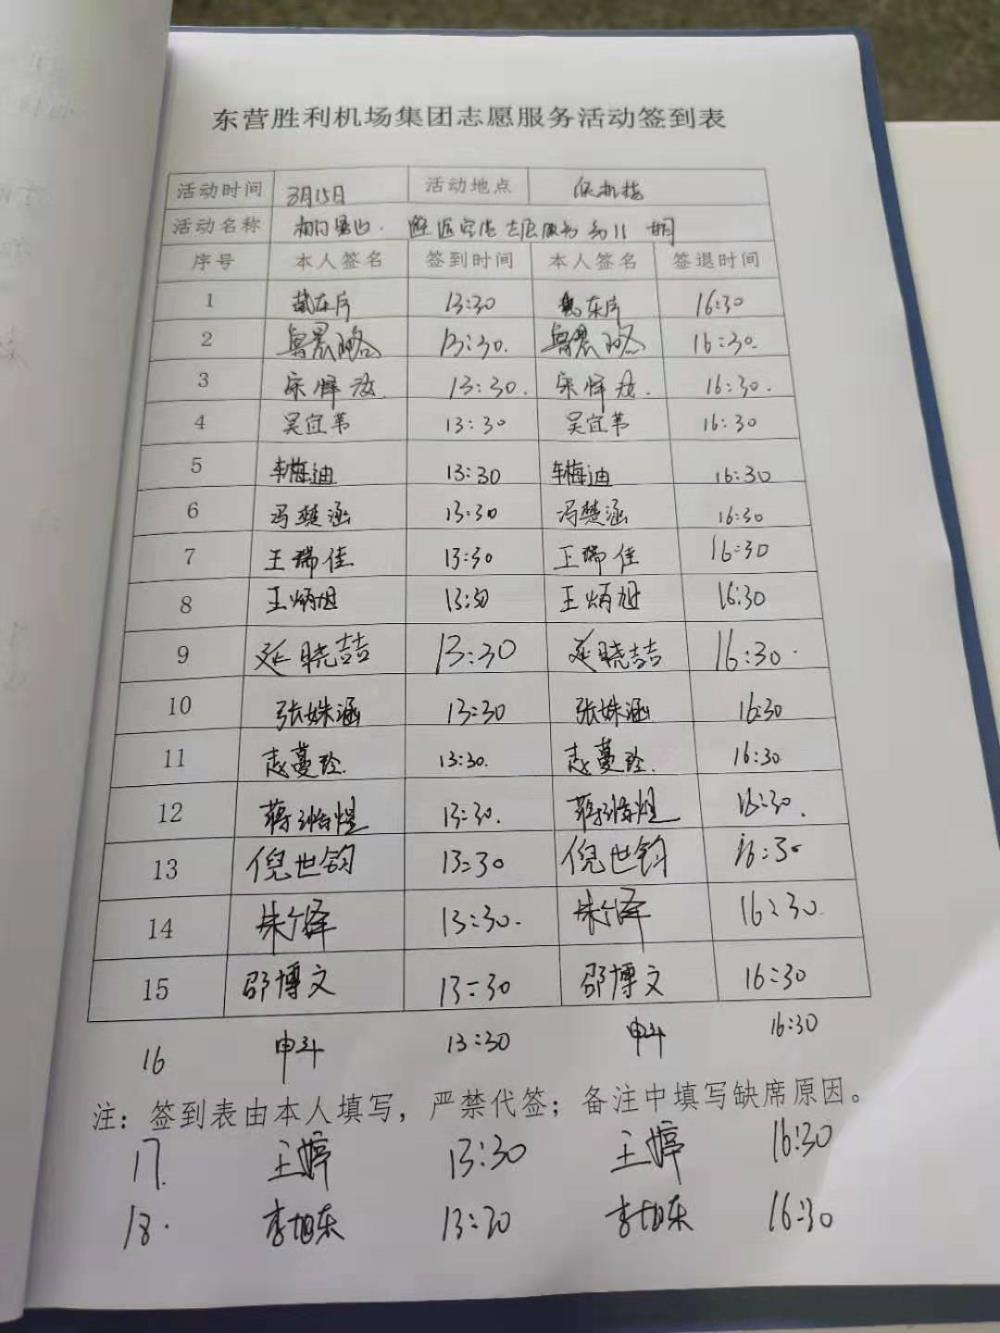 东营胜利机场集团志愿服务活动签到表
活动时间 3月15日 活动地点 候机楼
活动名称 志愿服务 11 期
序号 本人签名 签到时间 本人签名 签退时间
1 东 13:30 东 16:30
2 鲁晨璐 13:30. 鲁晨璐 16:30.
3 宋怿 13:30. 宋怿 16:30.
4 吴宜苇 13:30 吴宜苇 16:30
5 车梅迪 13:30 车梅迪 16:30
6 冯楚涵 13:30 冯楚涵 16:30
7 王瑞佳 13:30 王瑞佳 16:30
8 王炳旭 13:30 王炳旭 16:30
9 延晓喆 13:30 延晓喆 16:30.
10 张姝涵 13:30 张姝涵 16:30
11 赵蔓玲. 13:30. 赵蔓玲. 16:30.
12 蒋 煜 13:30. 蒋 煜 16:30.
13 倪世钧 13:30 倪世钧 16:30
14 朱 泽 13:30. 朱 泽 16:30.
15 邵博文 13:30 邵博文 16:30
16 申斗 13:30 申斗 16:30
注：签到表由本人填写，严禁代签；备注中填写缺席原因。
17. 王婷 13:30 王婷 16:30
18. 李旭东 13:30 李旭东 16:30